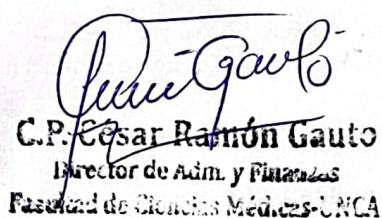 C.P. César Ramón Gauto
Director de Adm. y Finanzas
Facultad de Ciencias Médicas-UNCA